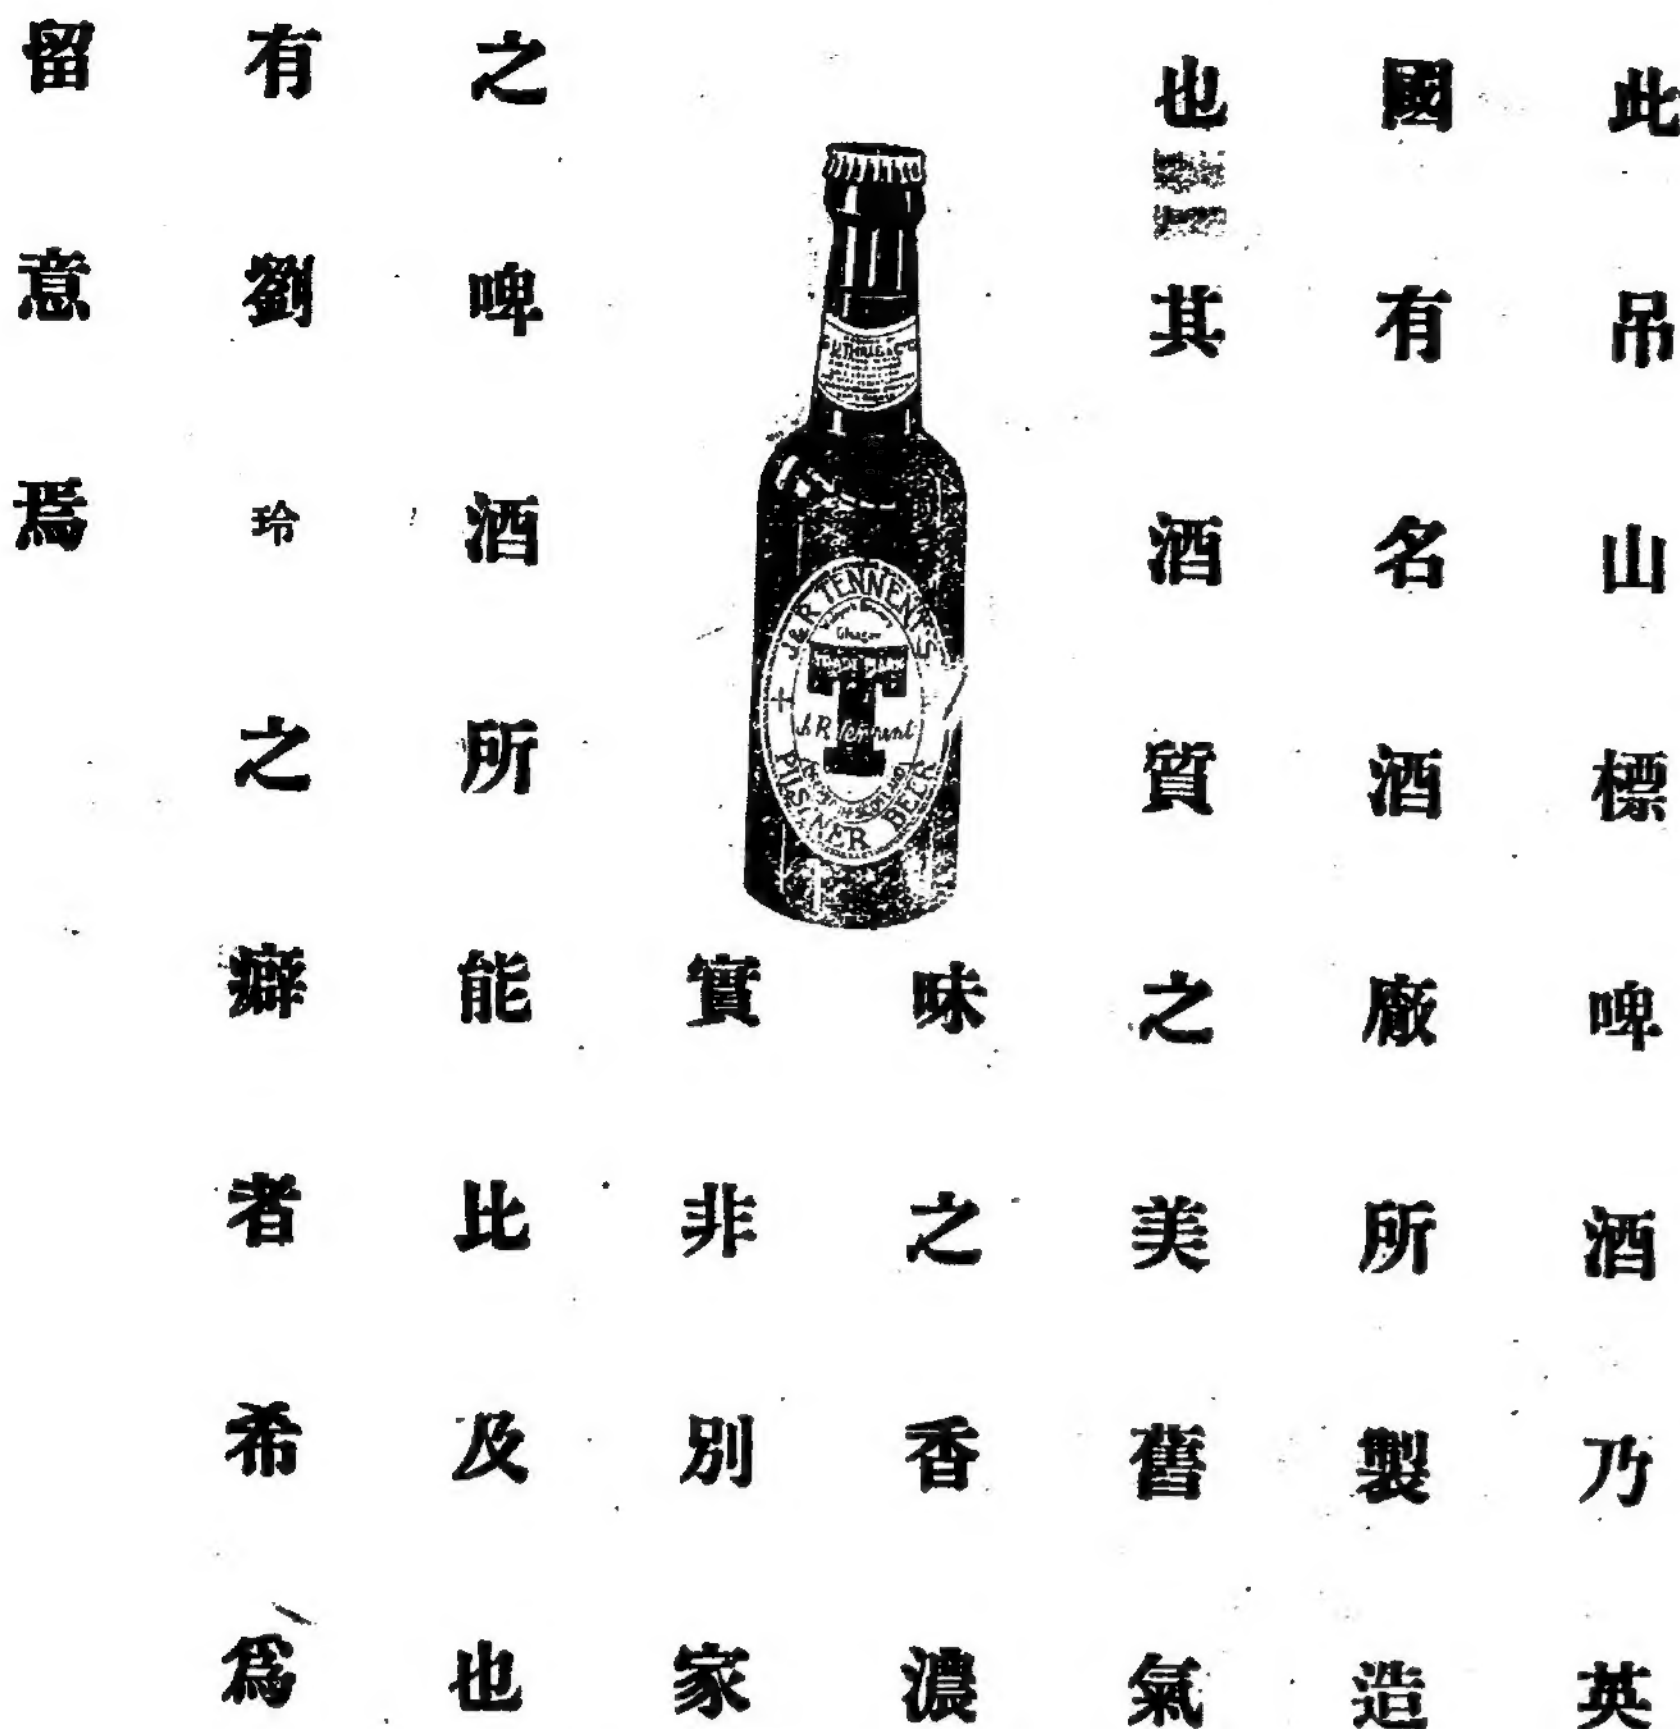 此吊山標啤酒乃英
國有名酒廠所製造
也其酒質之美舊氣
味之香濃
實非別家
之啤酒所能比及也
有劉玲之癖者希爲
留意焉
J&R TENNENT'S
Glasgow
TRADE MARK
T
J.R. Tennent
PILSNER BEER